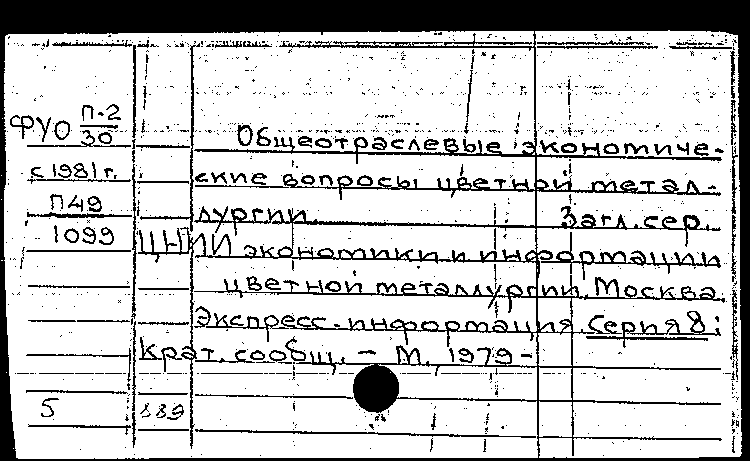 ФУО П-2/30
с 1981 г.
П49
1099
Общеотраслевые экономиче-
ские вопросы цветной метал-
лургии. Загл. сер.
ЦНИИ экономики и информации
цветной металлургии. Москва.
Экспресс-информация. Серия 8:
Крат. сообщ. — М., 1979 -
5 889